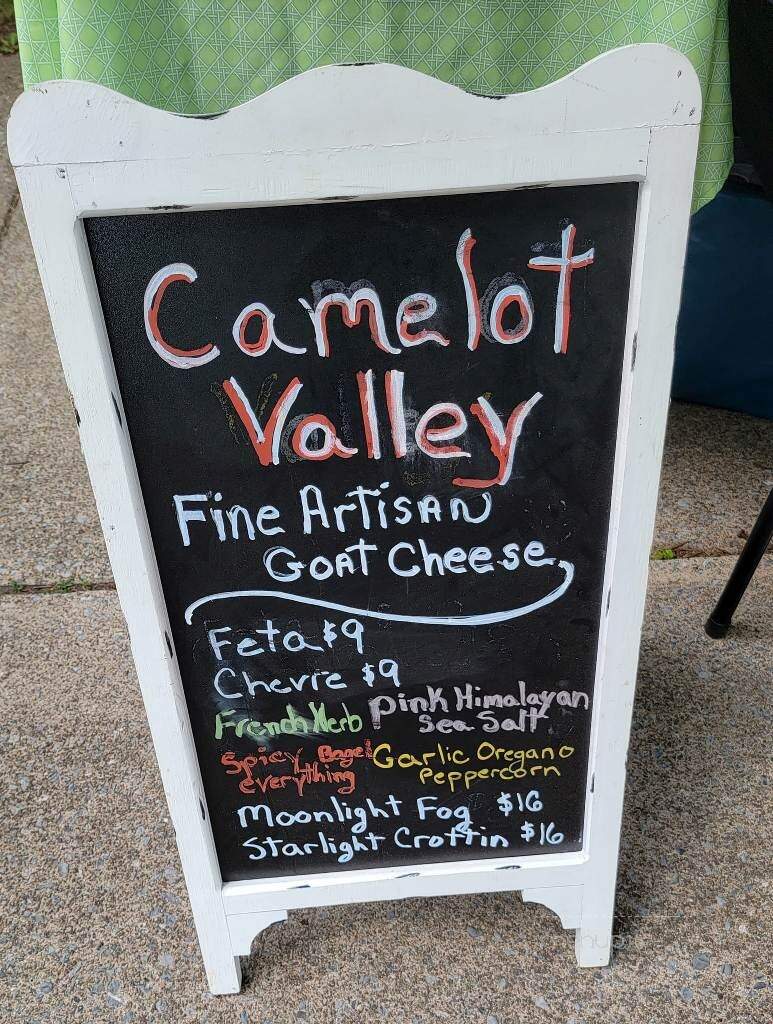 Camelot
Valley
Fine Artisan
Goat Cheese
Feta $9
Chevre $9
French Herb
Pink Himalayan
Sea Salt
Spicy Bagel
everything
Garlic Oregano
Peppercorn
Moonlight Fog $16
Starlight Crottin $16